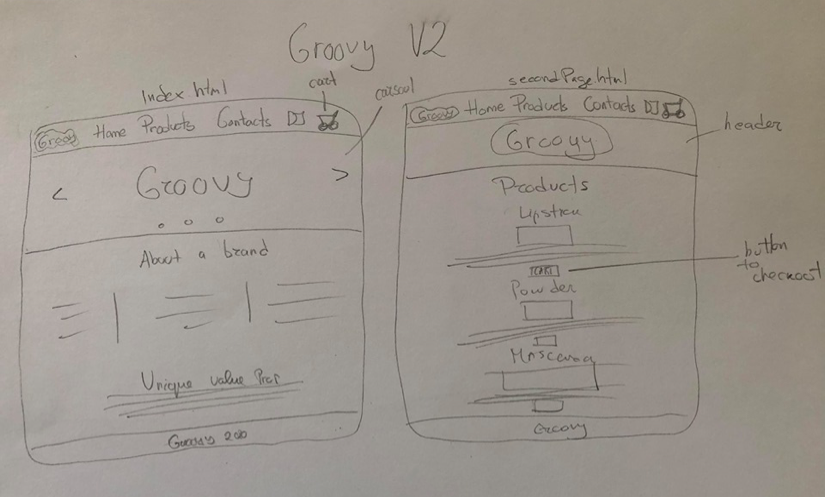 Groovy V2
Index html
cart
carsoul
Groovy Home Products Contacts
< Groovy >
About a brand
Unique value Prop
Groovy 200
secondPage.html
Groovy Home Products Contacts
header
Groovy
Products
Lipstick
button
to
checkout
Powder
Mascara
Groovy